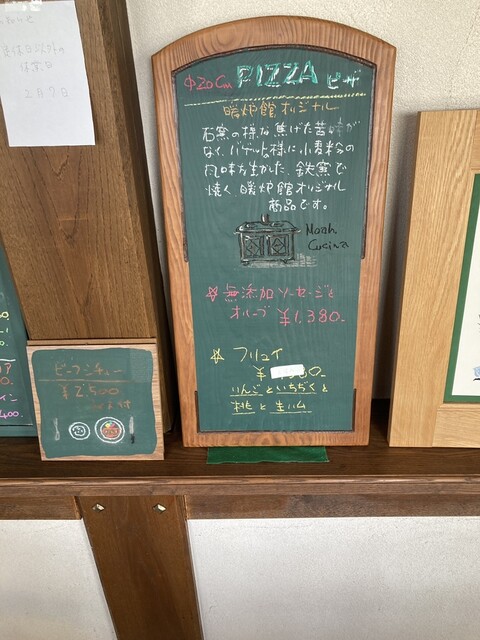 休業日
2月7日
φ20cm PIZZA ピザ
暖炉館オリジナル
石窯の様な焦げた苦味が
なく、バゲット様に小麦粉の
風味を生かした、鉄窯で
焼く、暖炉館オリジナル
商品です。
Noah
Cucina
☆無添加ソーセージと
オリーブ ¥1,380-
☆ フリュイ
りんごといちぢくと
桃と生ハム
ビーフシチュー
¥2,500